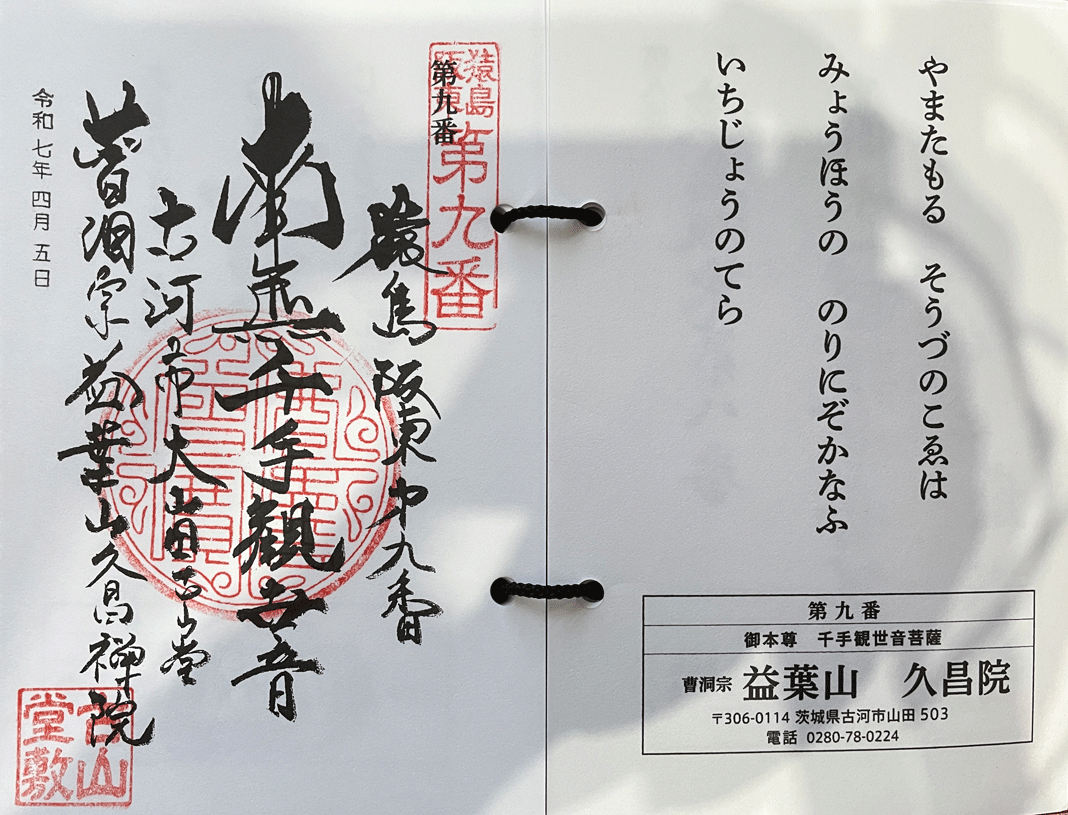 やまたもる　そうづのこゑは
みょうほうの　のりにぞかなふ
いちじょうのてら
第九番
御本尊　千手観世音菩薩
曹洞宗 益葉山　久昌院
〒306-0114 茨城県古河市山田 503
電話 0280-78-0224
猿島
阪東
第九番
第九番
猿島阪東中九番
南無千手観世音
古河市大山
曹洞宗益葉山久昌禅院
令和七年四月五日
古山
堂敷